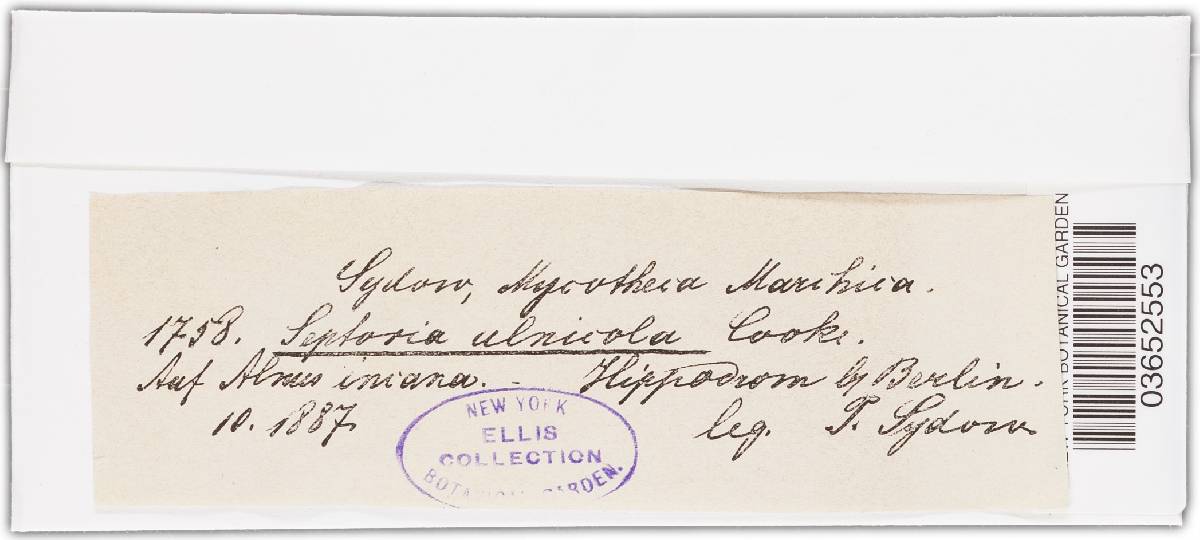 Sydow, Mycotheca Marchica.
1758. Septoria alnicola Cooke.
Auf Alnus incana. - Hippodrom b/ Berlin.
10. 1887. leg. P. Sydow
NEW YORK
ELLIS
COLLECTION
BOTANICAL GARDEN.
YORK BOTANICAL GARDEN
03652553